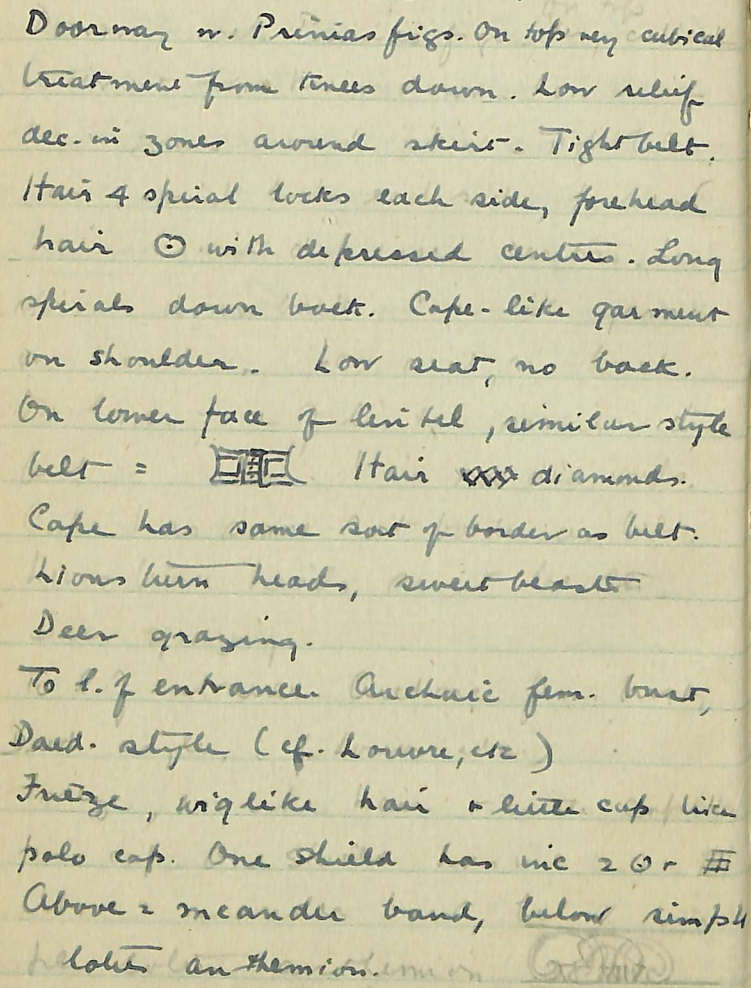 Doorway w. Prinias figs. On top very cubical
treatment from knees down. Low relief
dec. in zones around skirt. Tight belt.
Hair 4 spiral locks each side, forehead
hair ⊙ with depressed centres. Long
spirals down back. Cape-like garment
on shoulder. Low seat, no back.
On lower face of lintel, similar style
belt = Hair diamonds.
Cape has same sort of border as belt.
Lions turn heads, sweet beasts
Deer grazing.
To l. of entrance. Archaic fem. bust,
Daed. style (cf. Louvre, etc)
Frieze, wiglike hair + little cap like
polo cap. One shield has inc
Above = meander band, below simple
lotus anthemion.